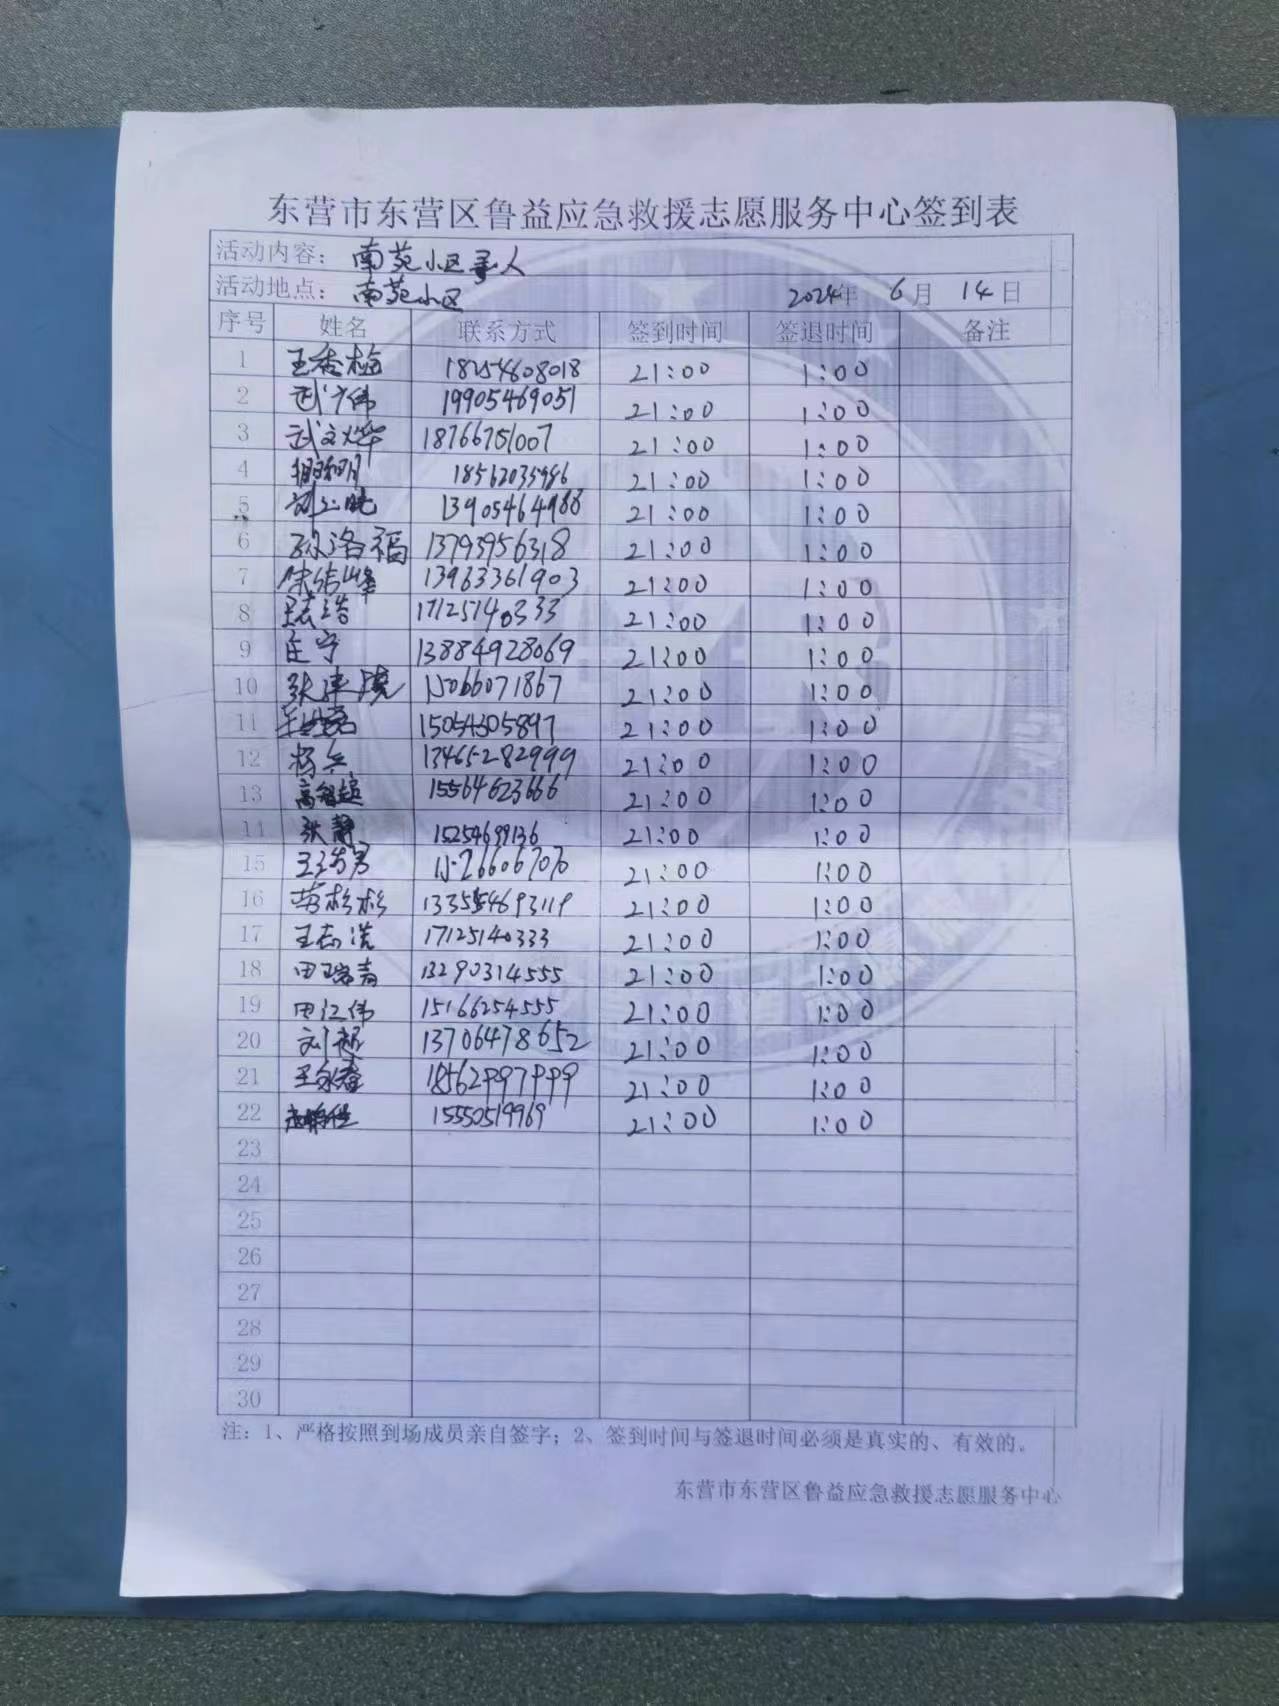 东营市东营区鲁益应急救援志愿服务中心签到表
活动内容: 南苑小区寻人
活动地点: 南苑小区 2024年 6月 14日
序号 姓名 联系方式 签到时间 签退时间 备注
1 王秀梅 18254608018 21:00 1:00
2 武广伟 19905469051 21:00 1:00
3 武文烨 18766751007 21:00 1:00
4 18562035986 21:00 1:00
5 13905464988 21:00 1:00
6 孙洛福 13793956318 21:00 1:00
7 13963361903 21:00 1:00
8 王志浩 17125140333 21:00 1:00
9 庄宁 13884928069 21:00 1:00
10 15066071867 21:00 1:00
11 15054305897 21:00 1:00
12 杨兵 13465282999 21:00 1:00
13 高智超 15564623666 21:00 1:00
14 张静 15254699136 21:00 1:00
15 21:00 1:00
16 苗杉杉 21:00 1:00
17 王志浩 17125140333 21:00 1:00
18 田瑞青 13290314555 21:00 1:00
19 田江伟 15166254555 21:00 1:00
20 刘超 13706478652 21:00 1:00
21 王永春 18562997999 21:00 1:00
22 15550519969 21:00 1:00
23
24
25
26
27
28
29
30
注: 1、严格按照到场成员亲自签字; 2、签到时间与签退时间必须是真实的、有效的。
东营市东营区鲁益应急救援志愿服务中心